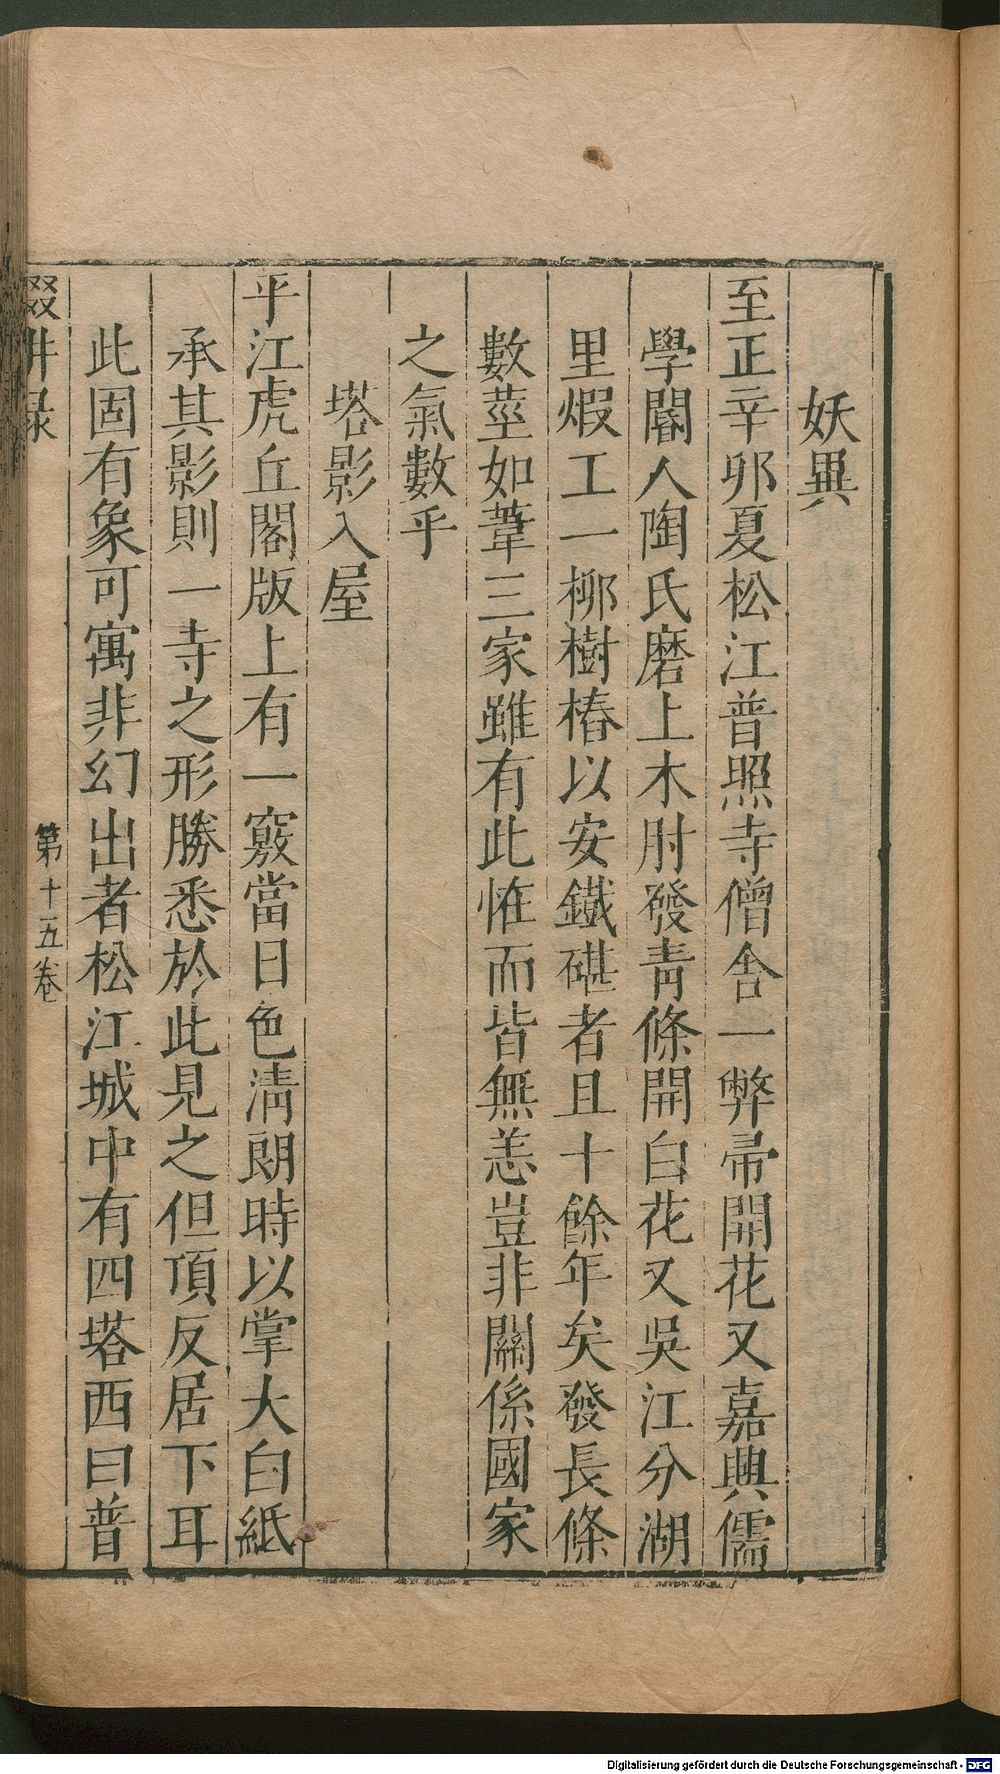 妖異
至正辛卯夏松江普照寺僧舍一弊帚開花又嘉興儒
學閽人陶氏磨上木肘發青條開白花又吳江分湖
里煆工一柳樹樁以安鐵碪者且十餘年矣發長條
數莖如葦三家雖有此恠而皆無恙豈非關係國家
之氣數乎
塔影入屋
平江虎丘閣版上有一竅當日色清朗時以掌大白紙
承其影則一寺之形勝悉於此見之但頂反居下耳
此固有象可寓非幻出者松江城中有四塔西曰普
輟耕録
第十五卷
Digitalisierung gefördert durch die Deutsche Forschungsgemeinschaft - DFG